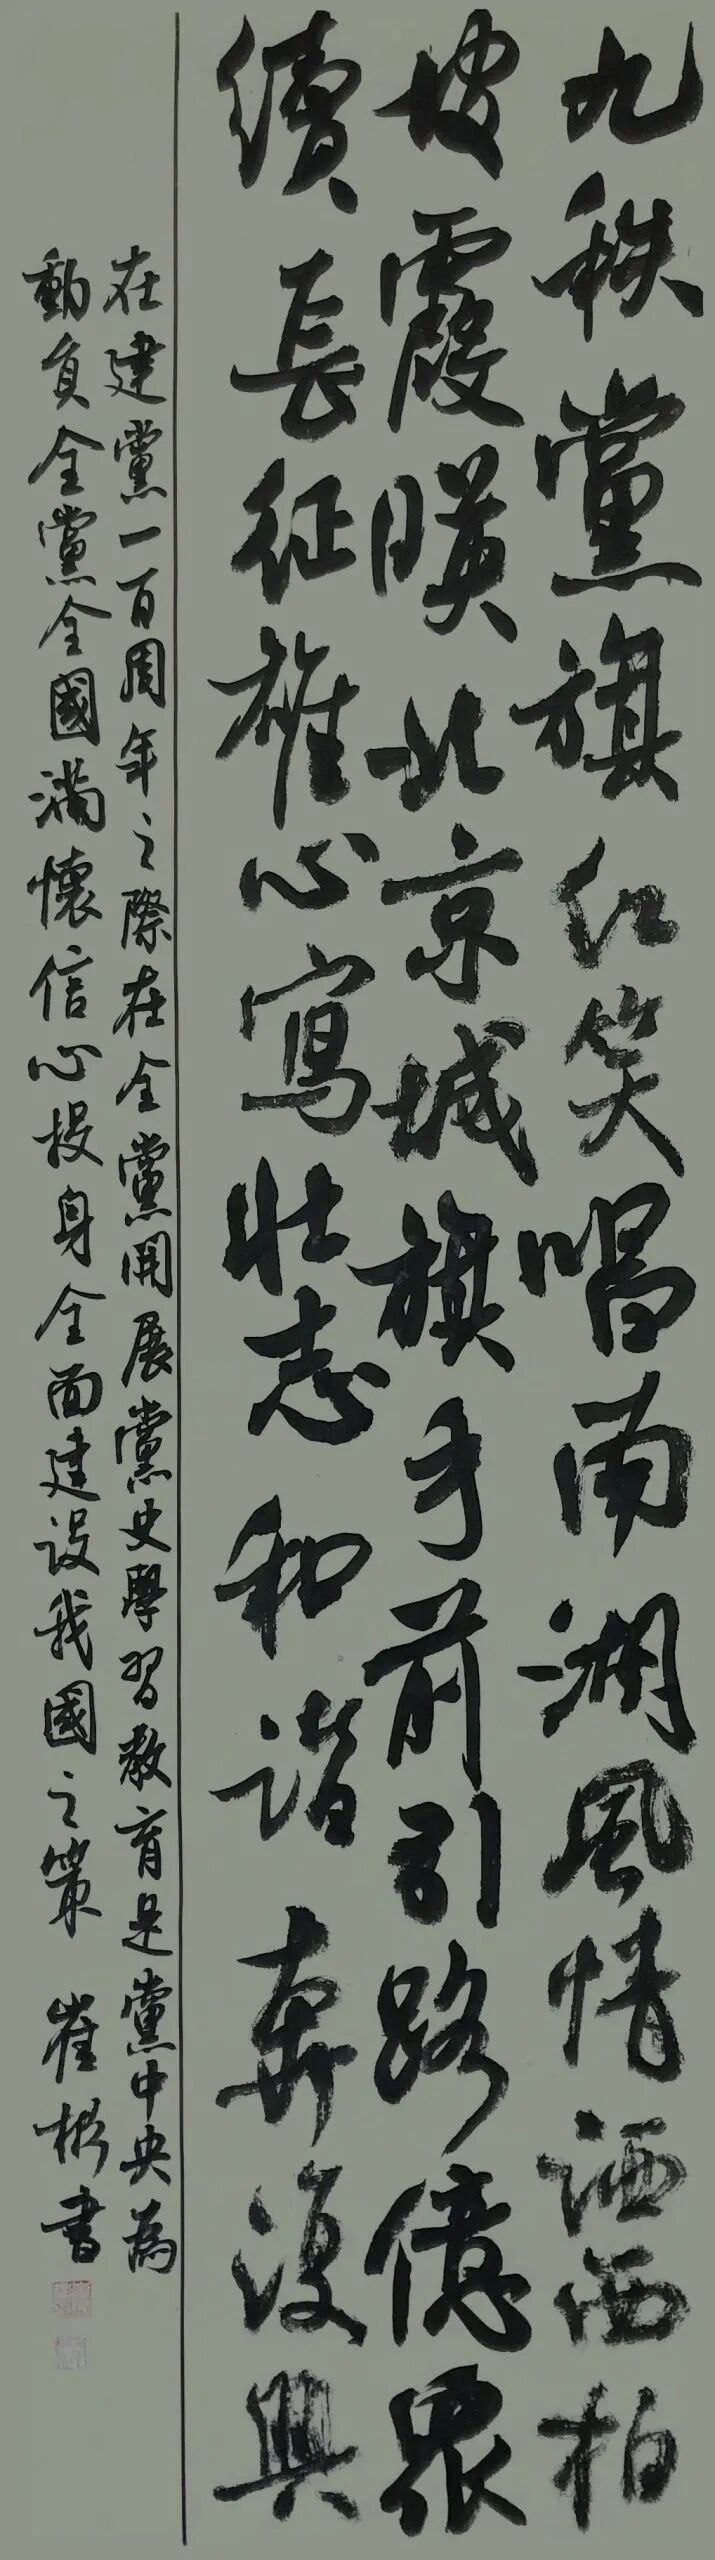 九秩黨旗红笑唱南湖風情洒西柏
坡霞暎北京城旗手前引路億眾
續長征雄心寫壯志和谐奔復興
在建黨一百周年之際在全黨開展黨史學習教育是黨中央為
動員全黨全國滿懷信心投身全面建设我國之策 崔彬書